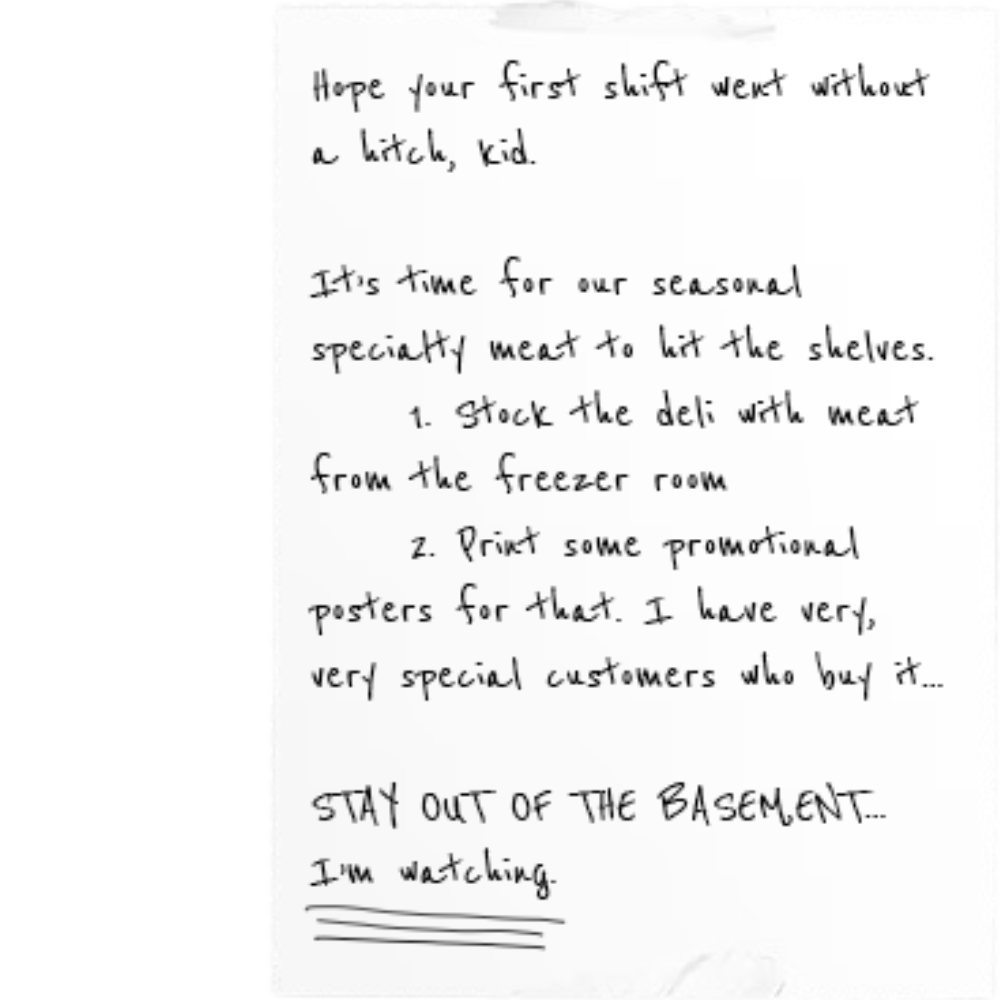 Hope your first shift went without
a hitch, kid.
It's time for our seasonal
specialty meat to hit the shelves.
1. Stock the deli with meat
from the freezer room
2. Print some promotional
posters for that. I have very,
very special customers who buy it...
STAY OUT OF THE BASEMENT...
I'm watching.